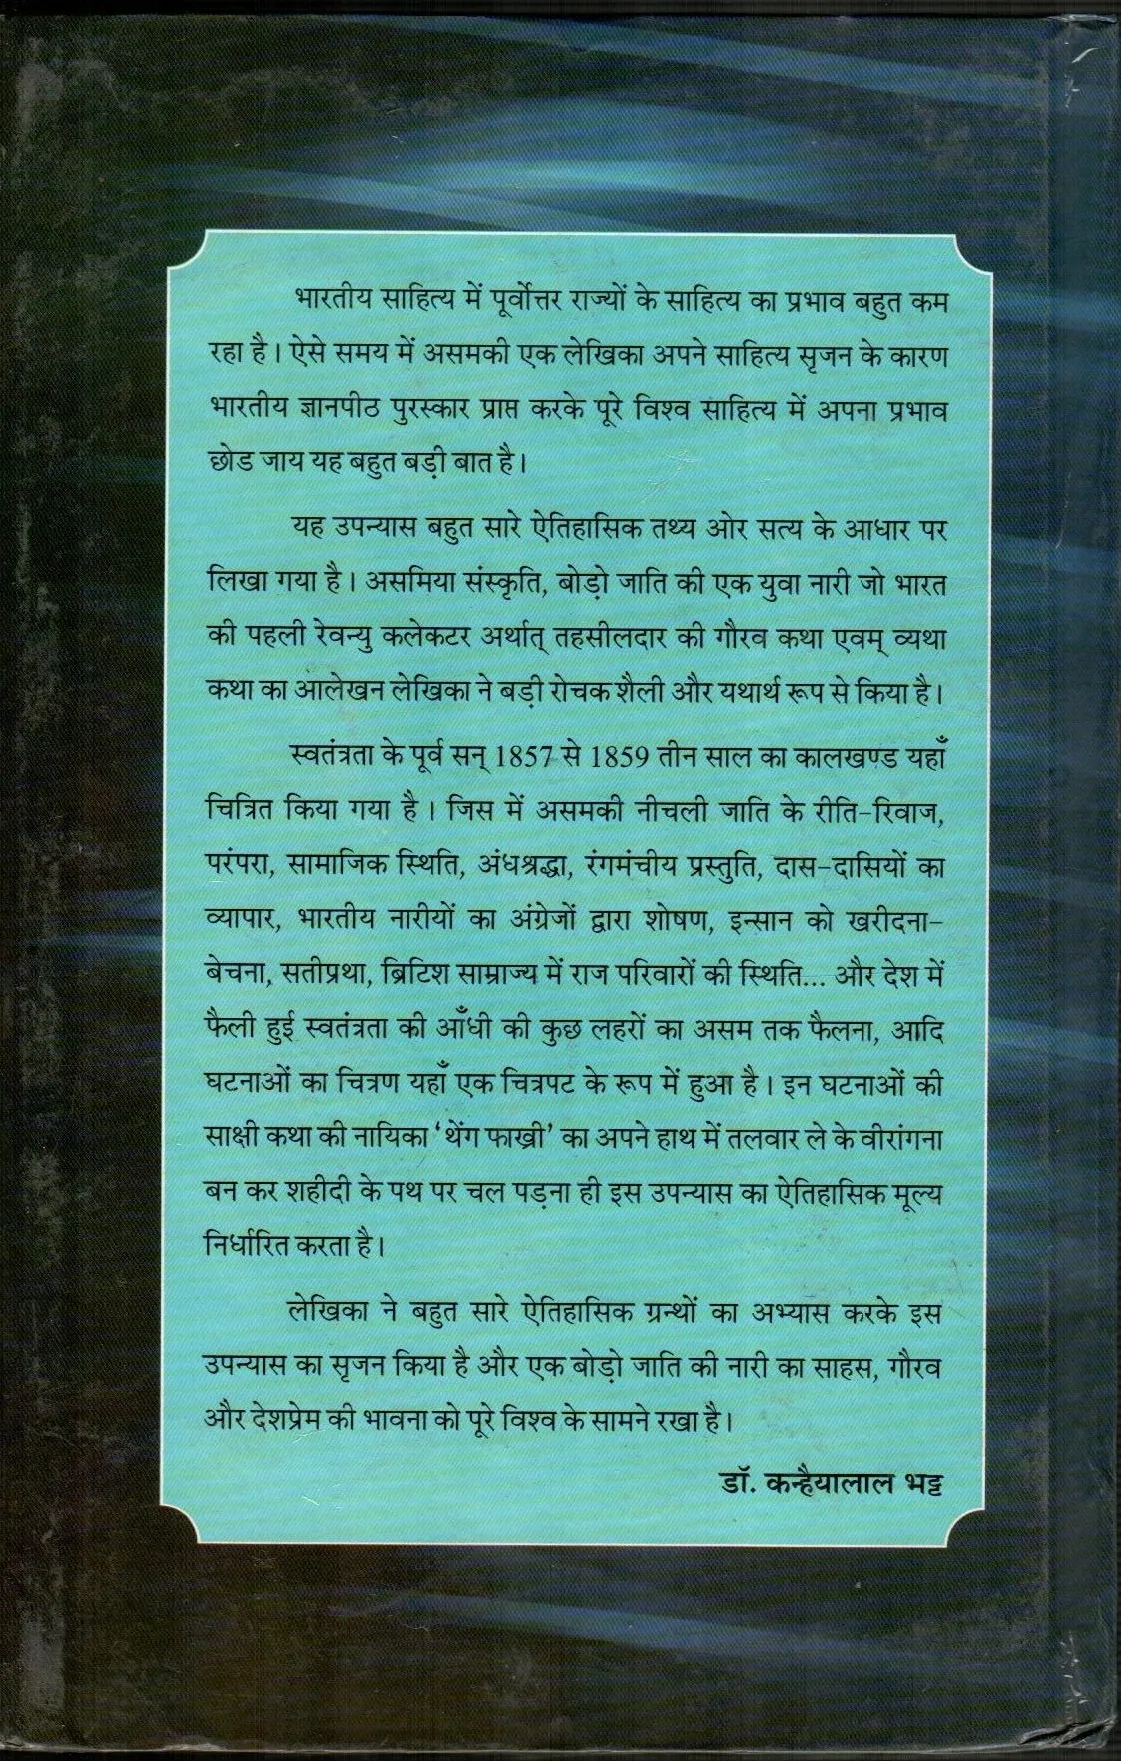 भारतीय साहित्य में पूर्वोत्तर राज्यों के साहित्य का प्रभाव बहुत कम
रहा है। ऐसे समय में असमकी एक लेखिका अपने साहित्य सृजन के कारण
भारतीय ज्ञानपीठ पुरस्कार प्राप्त करके पूरे विश्व साहित्य में अपना प्रभाव
छोड जाय यह बहुत बड़ी बात है।
यह उपन्यास बहुत सारे ऐतिहासिक तथ्य ओर सत्य के आधार पर
लिखा गया है। असमिया संस्कृति, बोड़ो जाति की एक युवा नारी जो भारत
की पहली रेवन्यु कलेकटर अर्थात् तहसीलदार की गौरव कथा एवम् व्यथा
कथा का आलेखन लेखिका ने बड़ी रोचक शैली और यथार्थ रूप से किया है।
स्वतंत्रता के पूर्व सन् 1857 से 1859 तीन साल का कालखण्ड यहाँ
चित्रित किया गया है। जिस में असमकी नीचली जाति के रीति-रिवाज,
परंपरा, सामाजिक स्थिति, अंधश्रद्धा, रंगमंचीय प्रस्तुति, दास-दासियों का
व्यापार, भारतीय नारीयों का अंग्रेजों द्वारा शोषण, इन्सान को खरीदना-
बेचना, सतीप्रथा, ब्रिटिश साम्राज्य में राज परिवारों की स्थिति... और देश में
फैली हुई स्वतंत्रता की आँधी की कुछ लहरों का असम तक फैलना, आदि
घटनाओं का चित्रण यहाँ एक चित्रपट के रूप में हुआ है। इन घटनाओं की
साक्षी कथा की नायिका ‘थेंग फाख्री’ का अपने हाथ में तलवार ले के वीरांगना
बन कर शहीदी के पथ पर चल पड़ना ही इस उपन्यास का ऐतिहासिक मूल्य
निर्धारित करता है।
लेखिका ने बहुत सारे ऐतिहासिक ग्रन्थों का अभ्यास करके इस
उपन्यास का सृजन किया है और एक बोड़ो जाति की नारी का साहस, गौरव
और देशप्रेम की भावना को पूरे विश्व के सामने रखा है।
डॉ. कन्हैयालाल भट्ट